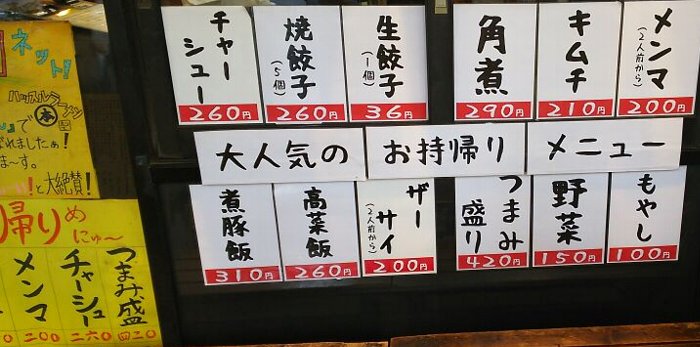 チャーシュー
260円
焼餃子
(5個)
260円
生餃子
(1個)
36円
角煮
290円
キムチ
210円
メンマ
(2人前から)
200円
大人気の お持帰り メニュー
煮豚飯
310円
高菜飯
260円
ザーサイ
(2人前から)
200円
つまみ盛り
420円
野菜
150円
もやし
100円
ネット!
ハッスルラーメン
本
で
ばれましたぁ!
ま〜す。
!と大絶賛!
帰りめにゅ〜
メンマ
200
チャーシュー
二六〇
つまみ盛
四二〇